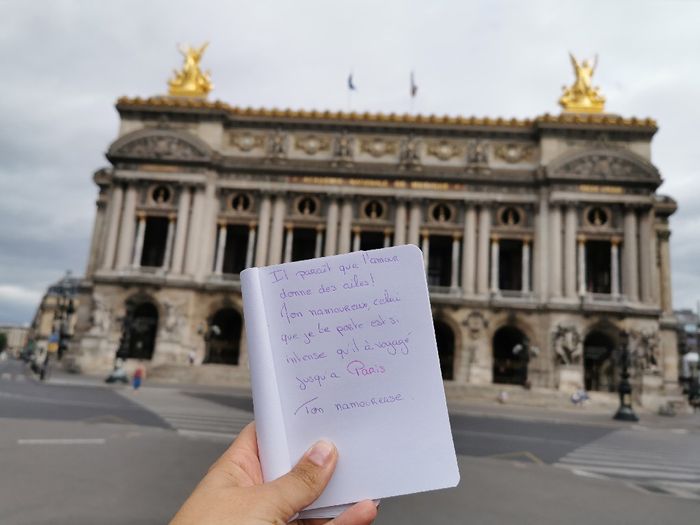 ACADEMIE NATIONALE DE MUSIQUE
Il paraît que l'amour
donne des ailes!
Mon namoureux, celui
que je te porte est si
intense qu'il a voyagé
jusqu'à Paris
Ton namoureuse.